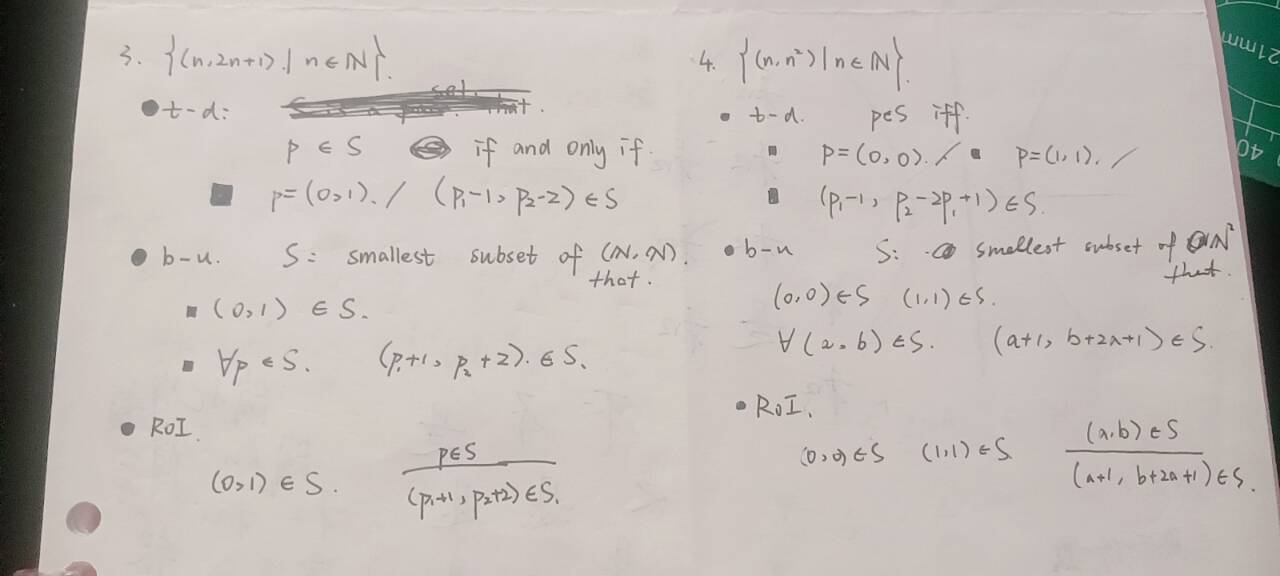 3. {(n, 2n+1) | n ∈ ℕ}.
• t-d:
p ∈ S if and only if.
▪ p=(0,1). / (p₁-1, p₂-2) ∈ S
• b-u. S: smallest subset of (ℕ, ℕ).
that.
▪ (0,1) ∈ S.
▪ ∀p ∈ S. (p₁+1, p₂+2). ∈ S.
• RoI.
p∈S
(0,1) ∈ S.
(p₁+1, p₂+2) ∈ S.
4. {(n, n²) | n ∈ ℕ}.
• t-d. p∈S iff.
▪ p=(0,0). / ▪ p=(1,1). /
▪ (p₁-1, p₂-2p₁+1) ∈ S.
• b-u S: smallest subset of ℕ²
that.
(0,0) ∈ S (1,1) ∈ S.
∀(a,b) ∈ S. (a+1, b+2a+1) ∈ S.
• RoI.
(a,b) ∈ S
(0,0) ∈ S (1,1) ∈ S
(a+1, b+2a+1) ∈ S.
21mm
40